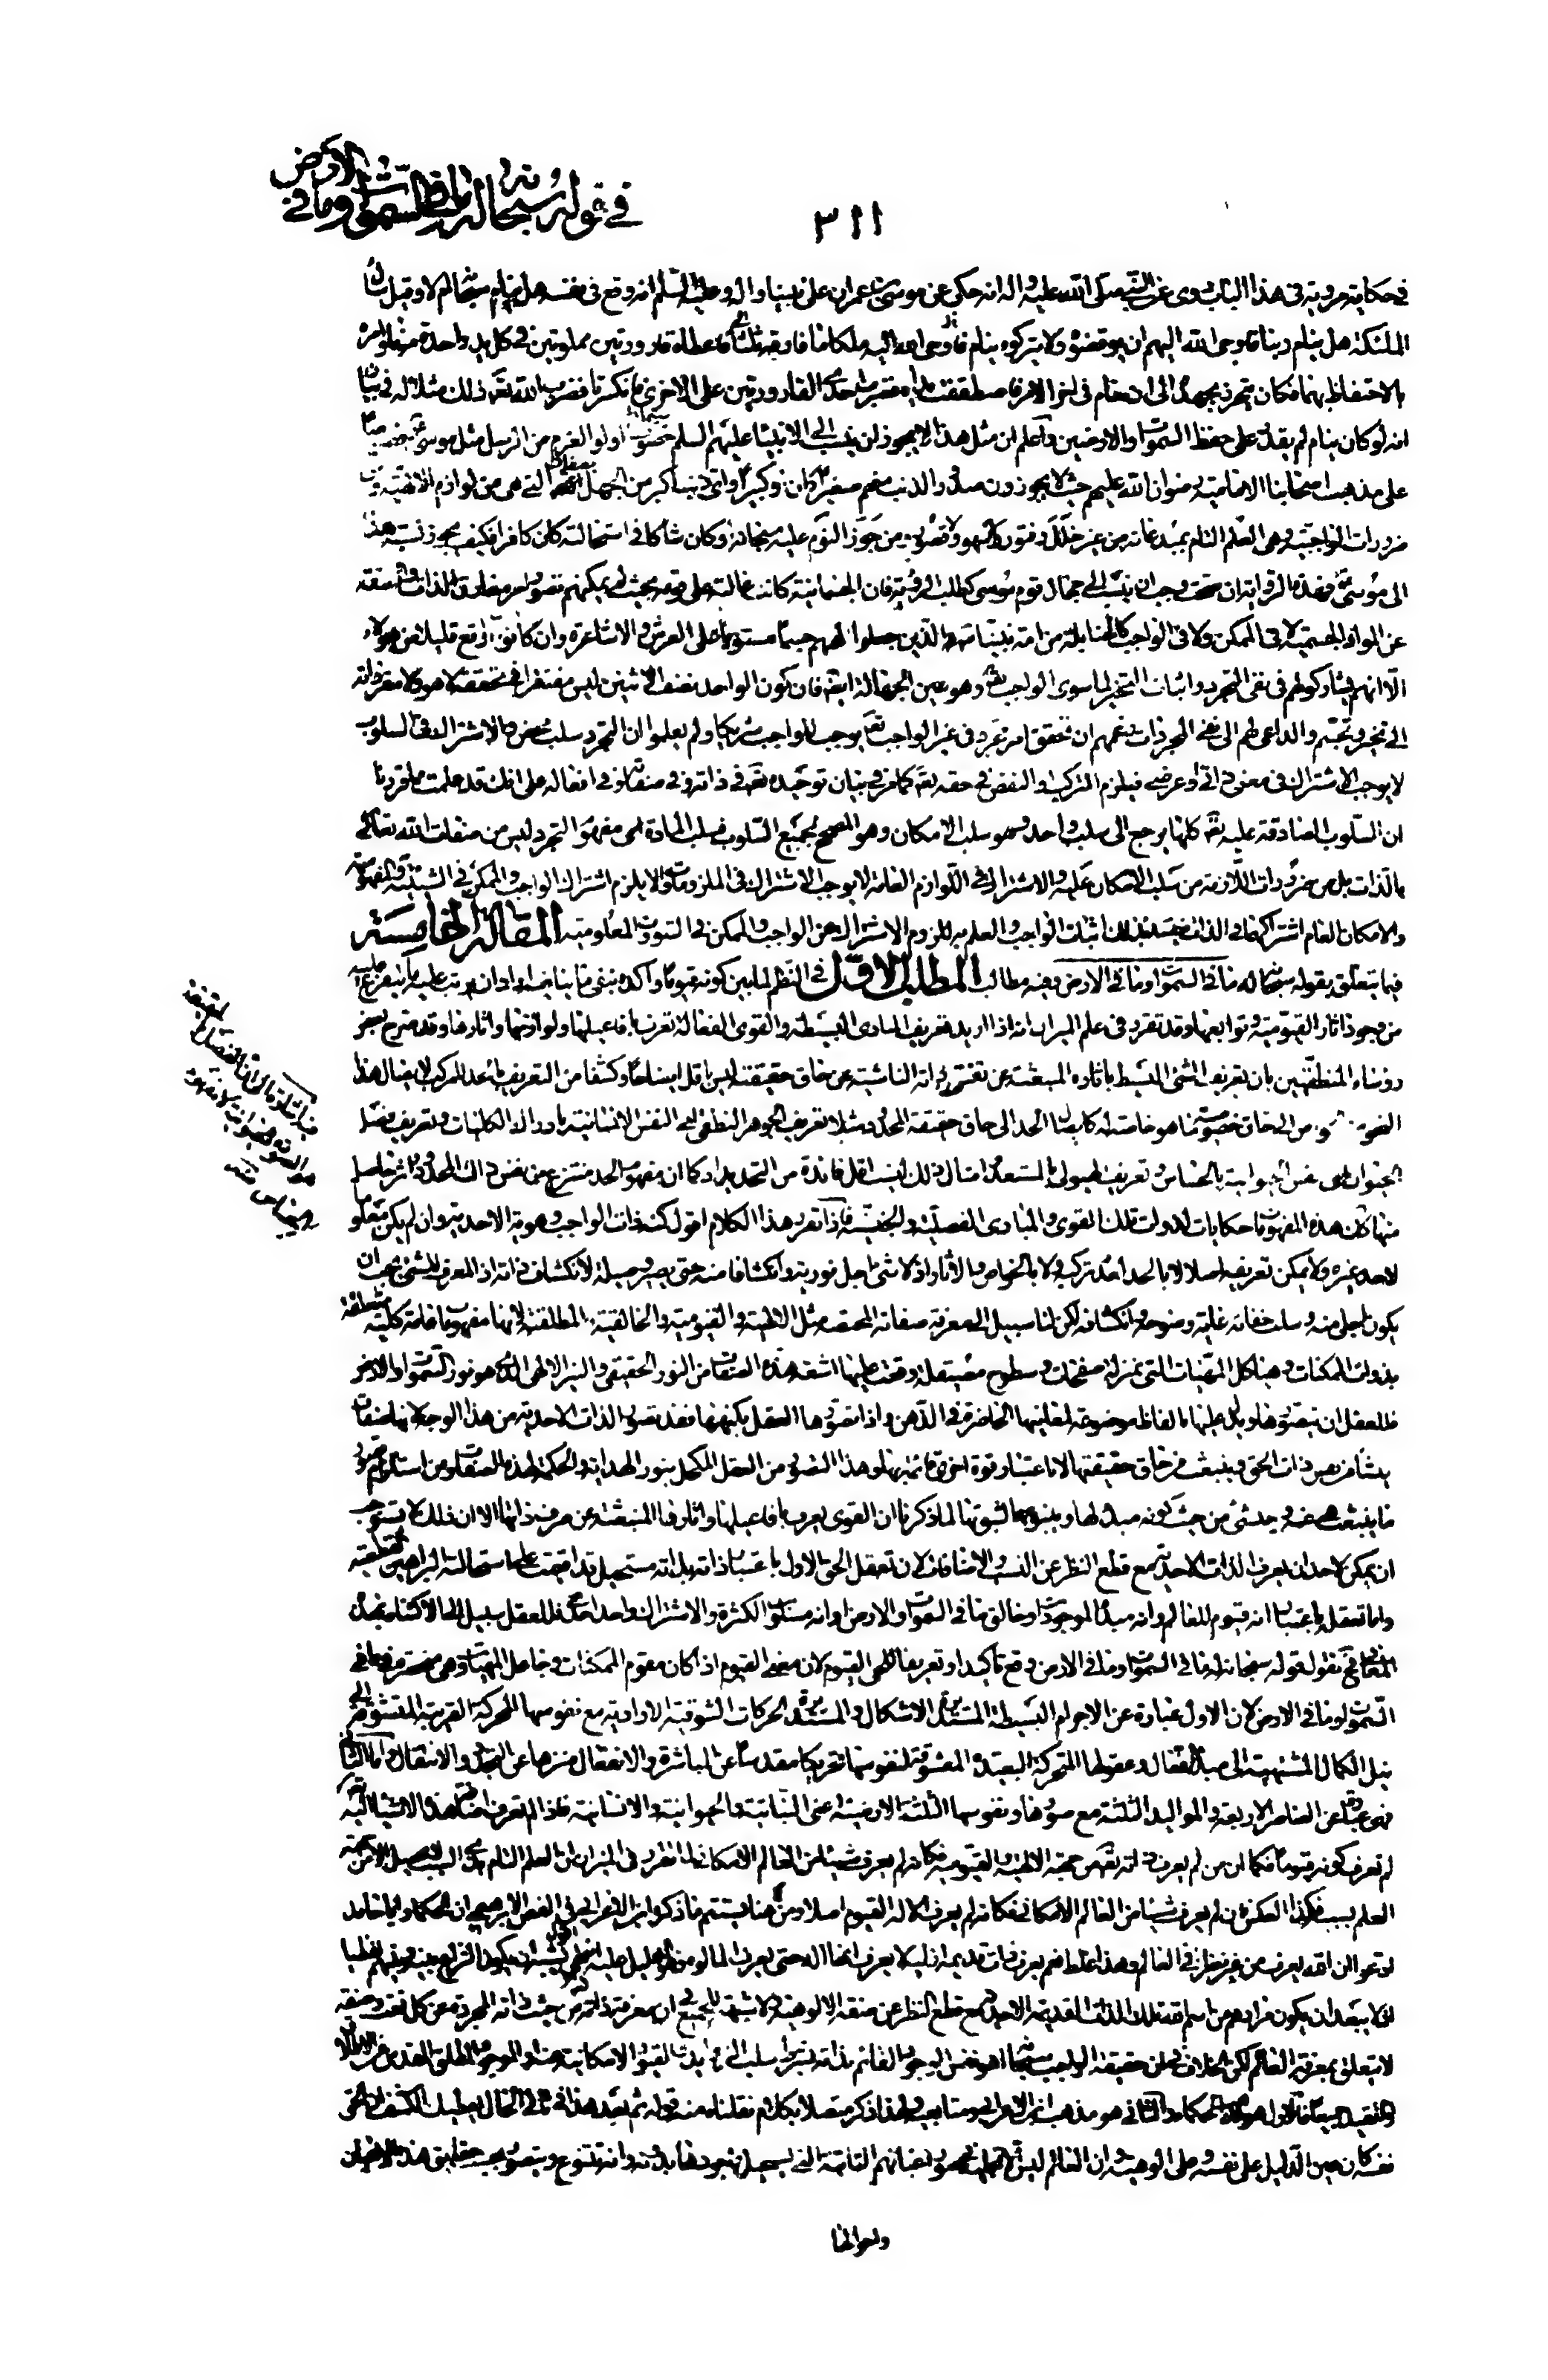 في قوله سبحانه له ما في السموات وما في الارض
٣١١
في حكاية مروية في هذا الباب روى عن النبي صلى الله عليه واله انه حكى عن موسى بن عمران على نبينا واله وعليه السلم انه وقع في نفسه هل ينام سبحانه ام لا وقيل سأل
الملئكة هل ينام ربنا فاوحى الله اليهم ان يوقضوه ولا يتركوه ينام فاوحى الله اليه ملكا فارقه ثلثا فاعطاه قارورتين مملوتين في كل يد واحدة منهما وامره
بالاحتفاظ بهما فكان يتحرز بجهده الى ان نام في اخر الامر فاصطفقت يداه فضرب احدى القارورتين على الاخرى فانكسرتا فضرب الله تعالى ذلك مثلا له في بيان
انه لو كان ينام لم يقدر على حفظ السموات والارضين واعلم ان مثل هذا لا يجوز ان ينسب الى الانبياء عليهم السلم خصوصا اولو العزم من الرسل مثل موسى
على مذهب اصحابنا الامامية رضوان الله عليهم حيث لا يجوزون صدور الذنب منهم صغيرا كان او كبيرا واى ذنب اكبر من الجهل التي هي من لوازم الالهية
ضرورات الواجبية وهي العلم التام من غير خلل وفتور ولا سهو ولا قصور ومن جوز النوم عليه سبحانه او كان شاكا في استحالته كان كافرا فكيف يجوز نسبة هذا
الى موسى فهذه الرواية ان صحت وجب ان ينسب الى جهال قوم موسى كطلب الرؤية فان الجسمانية كانت غالبة على قومه بحيث لم يمكنهم تصور امر مفارق الذات والصفة
عن المواد الجسمية لا في الممكن ولا في الواجب كالحنابلة من امة نبينا الذين جعلوا الههم جسما مستويا على العرش والاشاعرة وان كانوا ارفع قليلا من هؤلاء
الا انهم يشاركونهم في نفى التجرد واثبات التحيز لما سوى الواجب تعالى وهو عين الجهالة ايضا فان كون الواحد نصف الاثنين ليس مفتقرا في تحققه لا هو ولا مفرداته
الى تحيز وتجسم والداعي لهم الى نفى المجردات زعمهم ان تحقق امر مجرد في غير الواجب تعالى يوجب للواجب شريكا ولم يعلموا ان التجرد سلب محض والاشتراك في السلوب
لا يوجب الاشتراك في معنى ذاتى او عرضى فيلزم التركيب او النقص في حقه تعالى كما مر في بيان توحيده تعالى في ذاته وفي صفاته وفي افعاله على انك قد علمت مما قررنا
ان السلوب الصادقة عليه تعالى كلها يرجع الى سلب واحد وهو سلب الامكان وهو المصحح لجميع السلوب فسلب المادة اعنى مفهوم التجرد ليس من صفات الله تعالى
بالذات بل من ضرورات اللازمة من سلب الامكان عليه والاشتراك في اللوازم العامة لا يوجب الاشتراك في الملزومات والا يلزم اشتراك الواجب والممكن في الشيئية والمفهومية
والامكان العام اشتراكهما في الذات اثبات الواجب والعلم به للزوم الاشتراك بين الواجب والممكن في الثبوت والمعلومية المقالة الخامسة
فيما يتعلق بقوله سبحانه له ما في السموات وما في الارض وفيه مطالب المطلب الاول في النظم لما بين كونه قيوما واكده بنفى ما ينافيه اراد ان يرتب عليه
من وجود آثار القيومية وتوابعها وقد تقرر في علم الميزان انه اذا اريد تعريف المبادى البسيطة والقوى الفعالة تعرف بافاعيلها ولوازمها واثارها وقد صرح بعض
رؤساء المنطقيين بان تعريف الشئ البسيط باثاره المنبعثة عن الناشية عن حاق حقيقته ليس باقل ايضاحا وكشفا من التعريف بالحد للمركب لايصال هذا
من الى حاق خصوصية ما هو خاصته كايصال الحد الى حاق حقيقة المحدود مثلا تعريف الجوهر النطقى اى النفس الانسانية بادراك الكليات وتعريف فصل
الحيوان اى نفس الحيوانية بالحساس وتعريف الهيولى بالمستعد وامثال ذلك ليست اقل فائدة من التحديد وكما ان مفهوم الحد منتزع عن نفس ذات المحدود اثر حاصل
منها كذلك هذه المفهومات حكايات لذوات تلك القوى والمبادى الفصلية والجنسية فاذا تقرر هذا الكلام اقول كنه ذات الواجب وهويته الاحدية وان لم يكن معلوما
لاحد غيره ولا يمكن تعريفه اصلا لا بالحد لعدم تركبه ولا بالخواص والاثار اذ لا شئ اجل نورية وانكشافا منه حتى يصير وسيلة لانكشاف ذاته اذ المعرف للشئ يجب ان
يكون اجلى منه وسبب خفائه غاية وضوحه وانكشافه لكن لنا سبيل الى معرفة صفاته المحضة مثل الالهية والقيومية والخالقية المطلقة لانها مفهومات عامة كلية متعلقة
بذوات الممكنات وهياكل المهيات التي بمنزلة صفحات وسطوح مصيقلة وقعت عليها اشعة هذه الصفات من النور الحقيقى والنير الالهى الذى هو نور السموات والارض
فللعقل ان يتصورها ويدل عليها بالفاظ موضوعة لمعانيها الحاضرة في الذهن واذا تصورها العقل بكنهها فقد تصور الذات الاحدية من هذا الوجه لانها صفات
ينشأ من عين ذات الحق وينبعث من حاق حقيقتها لا باعتبار قوة اخرى قائمة بها وهذا التصور من العقل المكحل بنور الهداية والحكمة لهذه الصفات من استلزم تصور
ما ينبعث عنه وجد شئ من حيث كونه مبدأ لها وينبوعا لثبوتها لما ذكرنا ان القوى يعرف بافاعيلها واثارها المنبعثة عن صرف ذاتها الا ان ذلك لا يستوجب
ان يمكن لاحد ان يعرف الذات الاحدية مع قطع النظر عن النسب والاضافات لان تعقل الحق الاول باعتبار ذاته بذاته مستحيل قد اقيمت على استحالته البراهين القطعية
واما تعقله باعتبار انه قيوم للعالم وانه مبدأ الموجودات وخالق ما في السموات والارض وانه مسلوب الكثرة والاشتراك واحد احد فللعقل سبيل الى الاكتناه بهذه
المعانى نقول قوله سبحانه له ما في السموات وما في الارض وقع تأكيدا وتعريفا للحى القيوم لان معنى القيوم اذا كان مقوم الممكنات وجاعل المهيات وهى منحصرة فيما في
السموات وما في الارض لان الاول عبارة عن الاجرام البسيطة المستديرة الاشكال والمستديرة الحركات الشوقية الارادية مع نفوسها المحركة القريبة المتشوقة الى
نيل الكمال المنتهية الى مبدأ فعال وعقولها المحركة البعيدة المعشوقة لنفوسها تحريكا مقدسا عن المباشرة والانفعال منزها عن التجدد والانتقال واما الثانى
فهى عبارة عن العناصر الاربعة والمواليد الثلثة مع صورها ونفوسها الثلثة الارضية اعنى النباتية والحيوانية والانسانية فاذا لم تعرف هذه الاشياء
لم تعرف كونه قيوما فكما ان من لم يعرف ذاته تعالى من جهة الالهية والقيومية فكانه لم يعرف شيئا من العالم الامكانى لما تقرر في الميزان ان العلم التام بذى السبب لا يحصل الا من جهة
العلم بسببه فكذا العكس من لم يعرف شيئا من العالم الامكانى فكانه لم يعرف الاله القيوم اصلا ومن هنا يستتم ما ذكره ابن الاعرابى في الفص الابراهيمى ان بعض الحكماء وابا حامد
ادعوا ان الله يعرف من غير نظر في العالم وهذا غلط نعم يعرف ذات قديمة ازلية لا يعرف انها اله حتى يعرف المألوه فهو الدليل عليه انتهى
لا يتعلق بمعرفة العالم لكن الخلاف في ان حقيقة الواجب سبحانه اهو نفس الوجود القائم بذاته بشرط سلب الامكانية عنه او الموجود المطلق
والتقييد جميعا فالاول هو مذهب الحكماء والثانى هو مذهب ابن الاعرابى ومتابعيه ولهذا ذكر متصلا بكلام نقلناه منه قوله ثم بعد هذا في ثانى الحال يعطيك الكشف ان الحق
نفسه كان عين الدليل على نفسه وعلى الوهيته وان العالم ليس الا تجليه في صور اعيانهم الثابتة التى يستحيل وجودها بدونه وانه يتنوع ويتصور بحسب حقايق هذه الاعيان
واحوالها